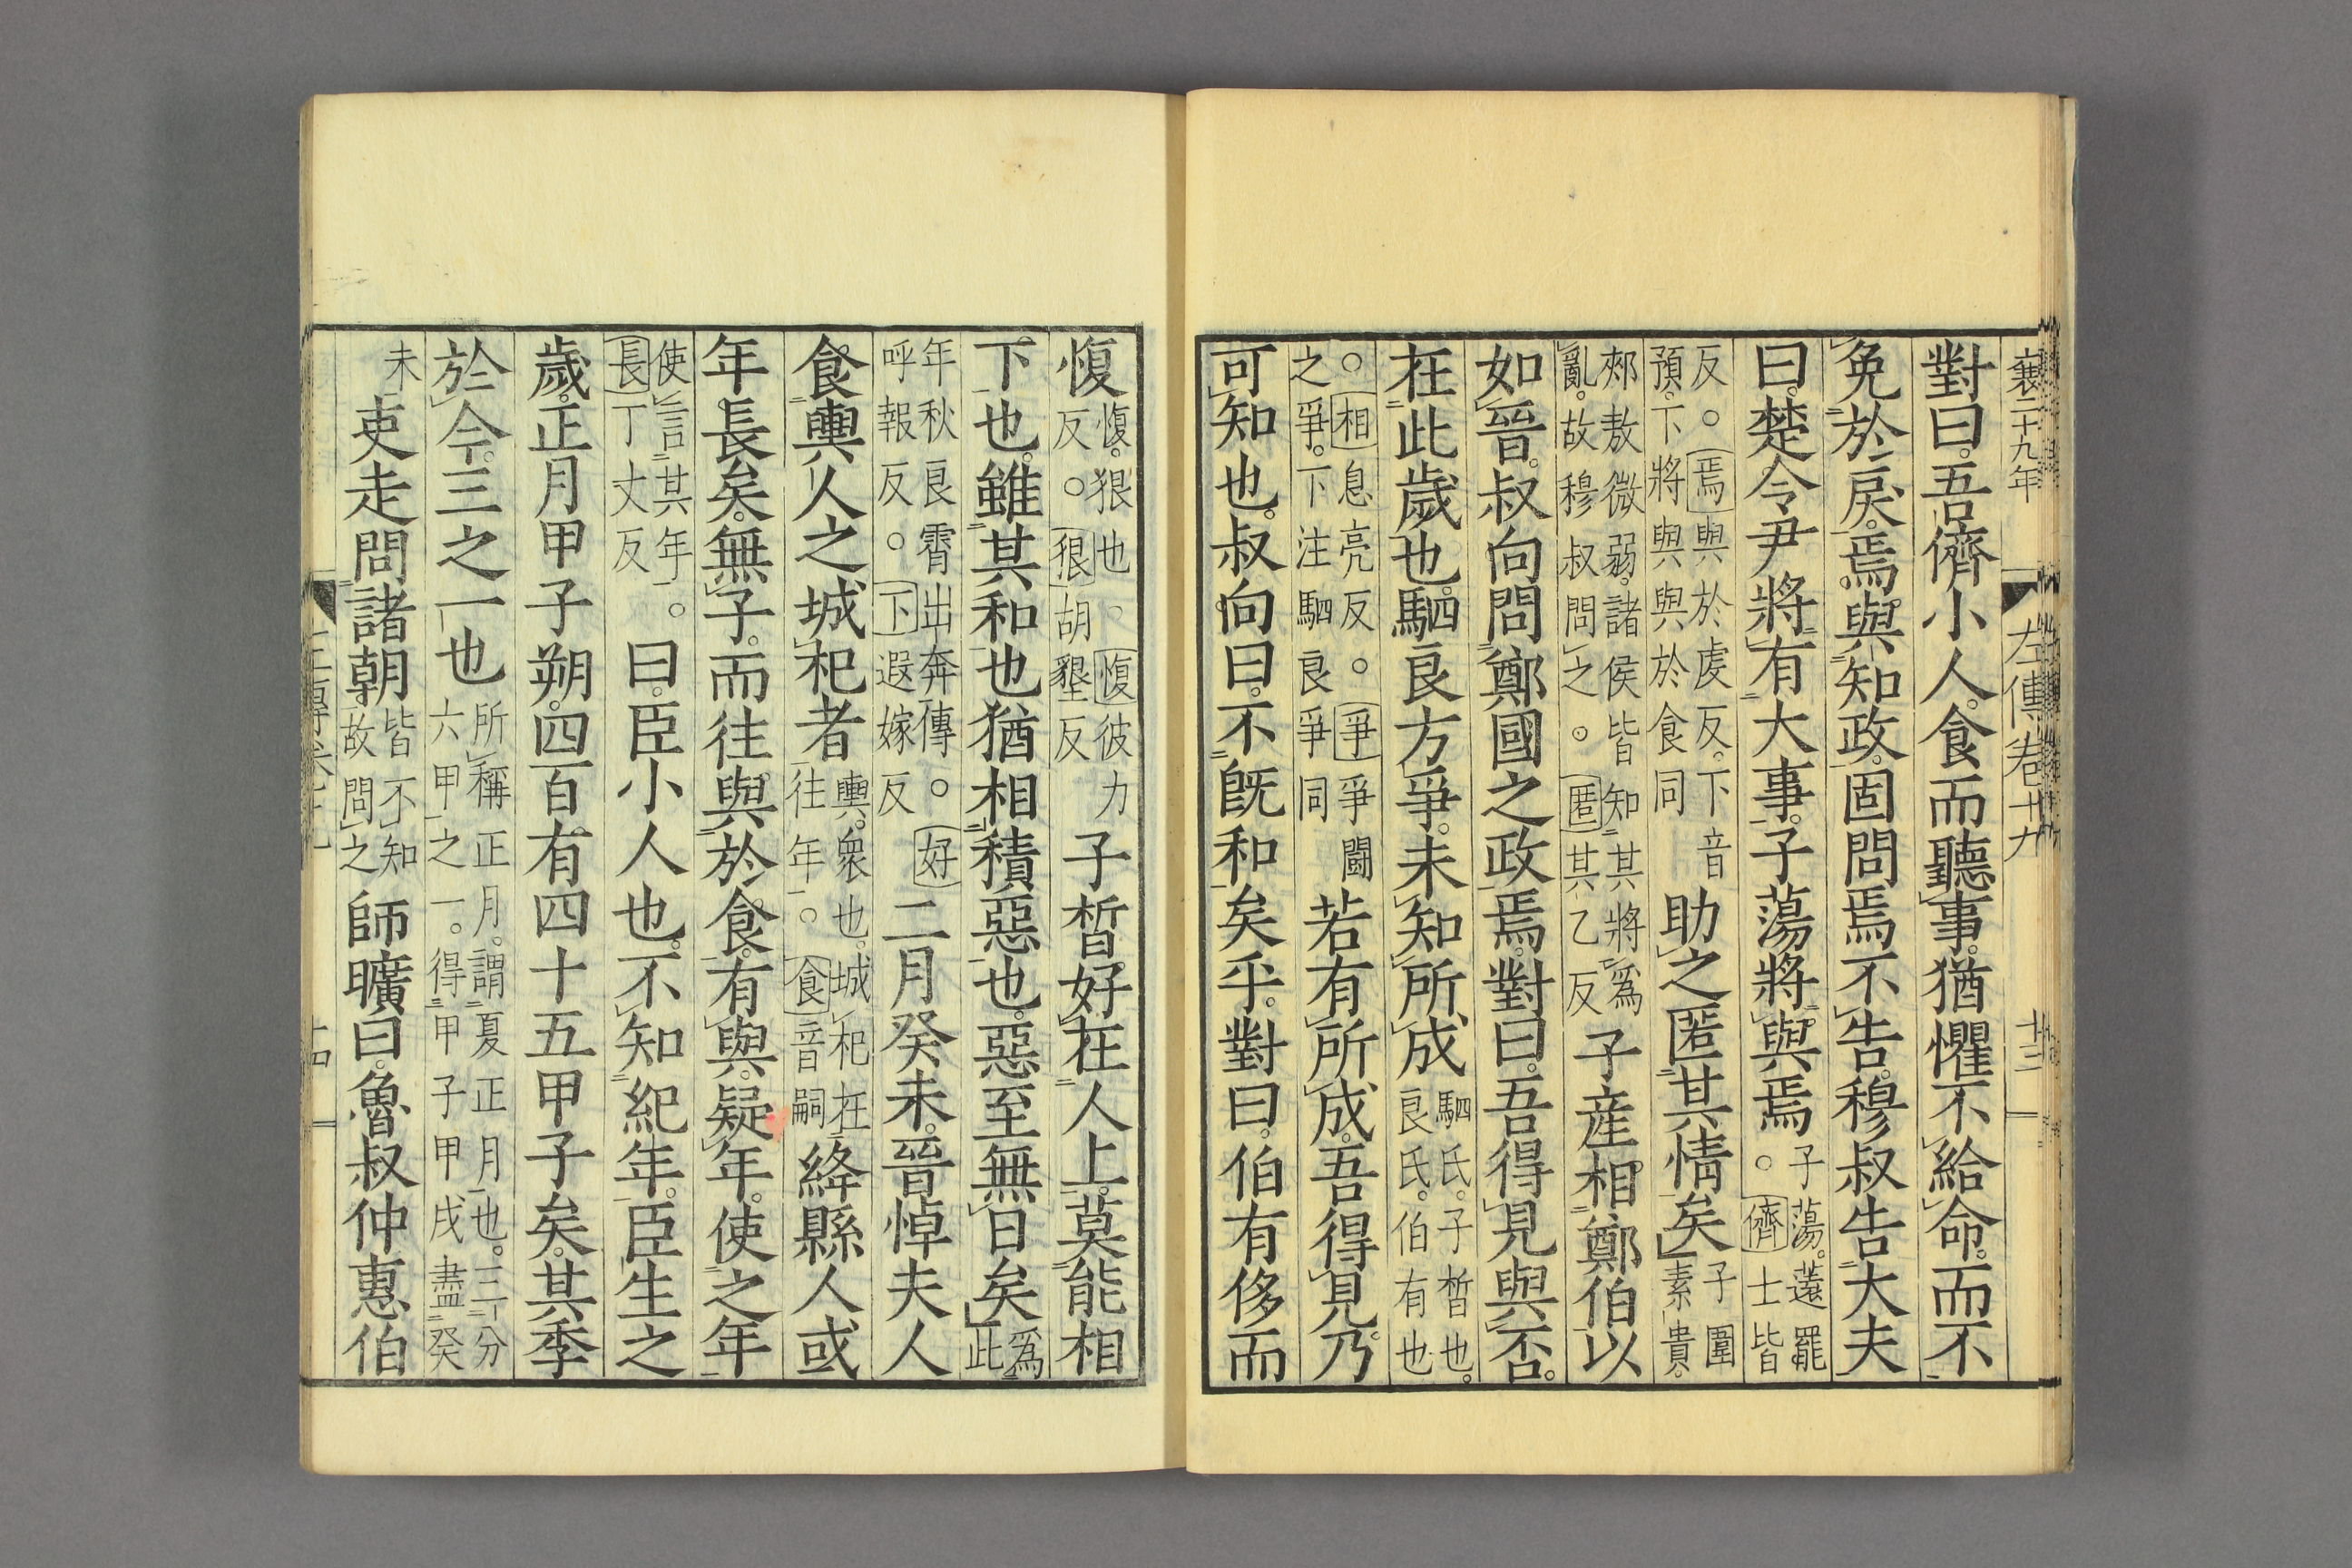 襄二十九年　左傳卷十九　廿三
對曰。吾儕小人。食而聽事。猶懼不給命。而不
免於戾。焉。與知政。固問焉。不告。穆叔告大夫
曰。楚令尹將有大事。子蕩將與焉
子蕩。薳罷
○儕士皆
反。○焉與於虔反。下音
預。下將與與於食同
助之匿其情矣
子圍
素貴。
郟敖微弱。諸侯皆知其將爲
亂。故穆叔問之。○匿其乙反
子産相鄭伯以
如晉。叔向問鄭國之政焉。對曰。吾得見與否。
在此歲也。駟良方爭。未知所成
駟氏。子皙也。
良氏。伯有也
○相息亮反。○爭爭鬭
之爭。下注駟良爭同
若有所成。吾得見乃
可知也。叔向曰。不旣和矣乎。對曰。伯有侈而
愎
愎。狠也。愎彼力
反。○狠胡墾反
子皙。好在人上。莫能相
下也。雖其和也猶相積惡也。惡至無日矣
爲
此
年秋良霄出奔傳。○好
呼報反。○下遐嫁反
二月癸未。晉悼夫人
食輿人之城杞者
輿。衆也。城杞在
往年。○食音嗣
絳縣人或
年長矣。無子。而往。與於食。有與。疑年。使之年
使言其年。○
長丁丈反
曰。臣小人也。不知紀年。臣生之
歲。正月甲子朔。四百有四十五甲子矣。其季
於今。三之一也
所稱正月。謂夏正月也。三分
六甲之一。得甲子甲戌盡癸
未
吏走問諸朝
皆不知
故問之
師曠曰。魯叔仲惠伯